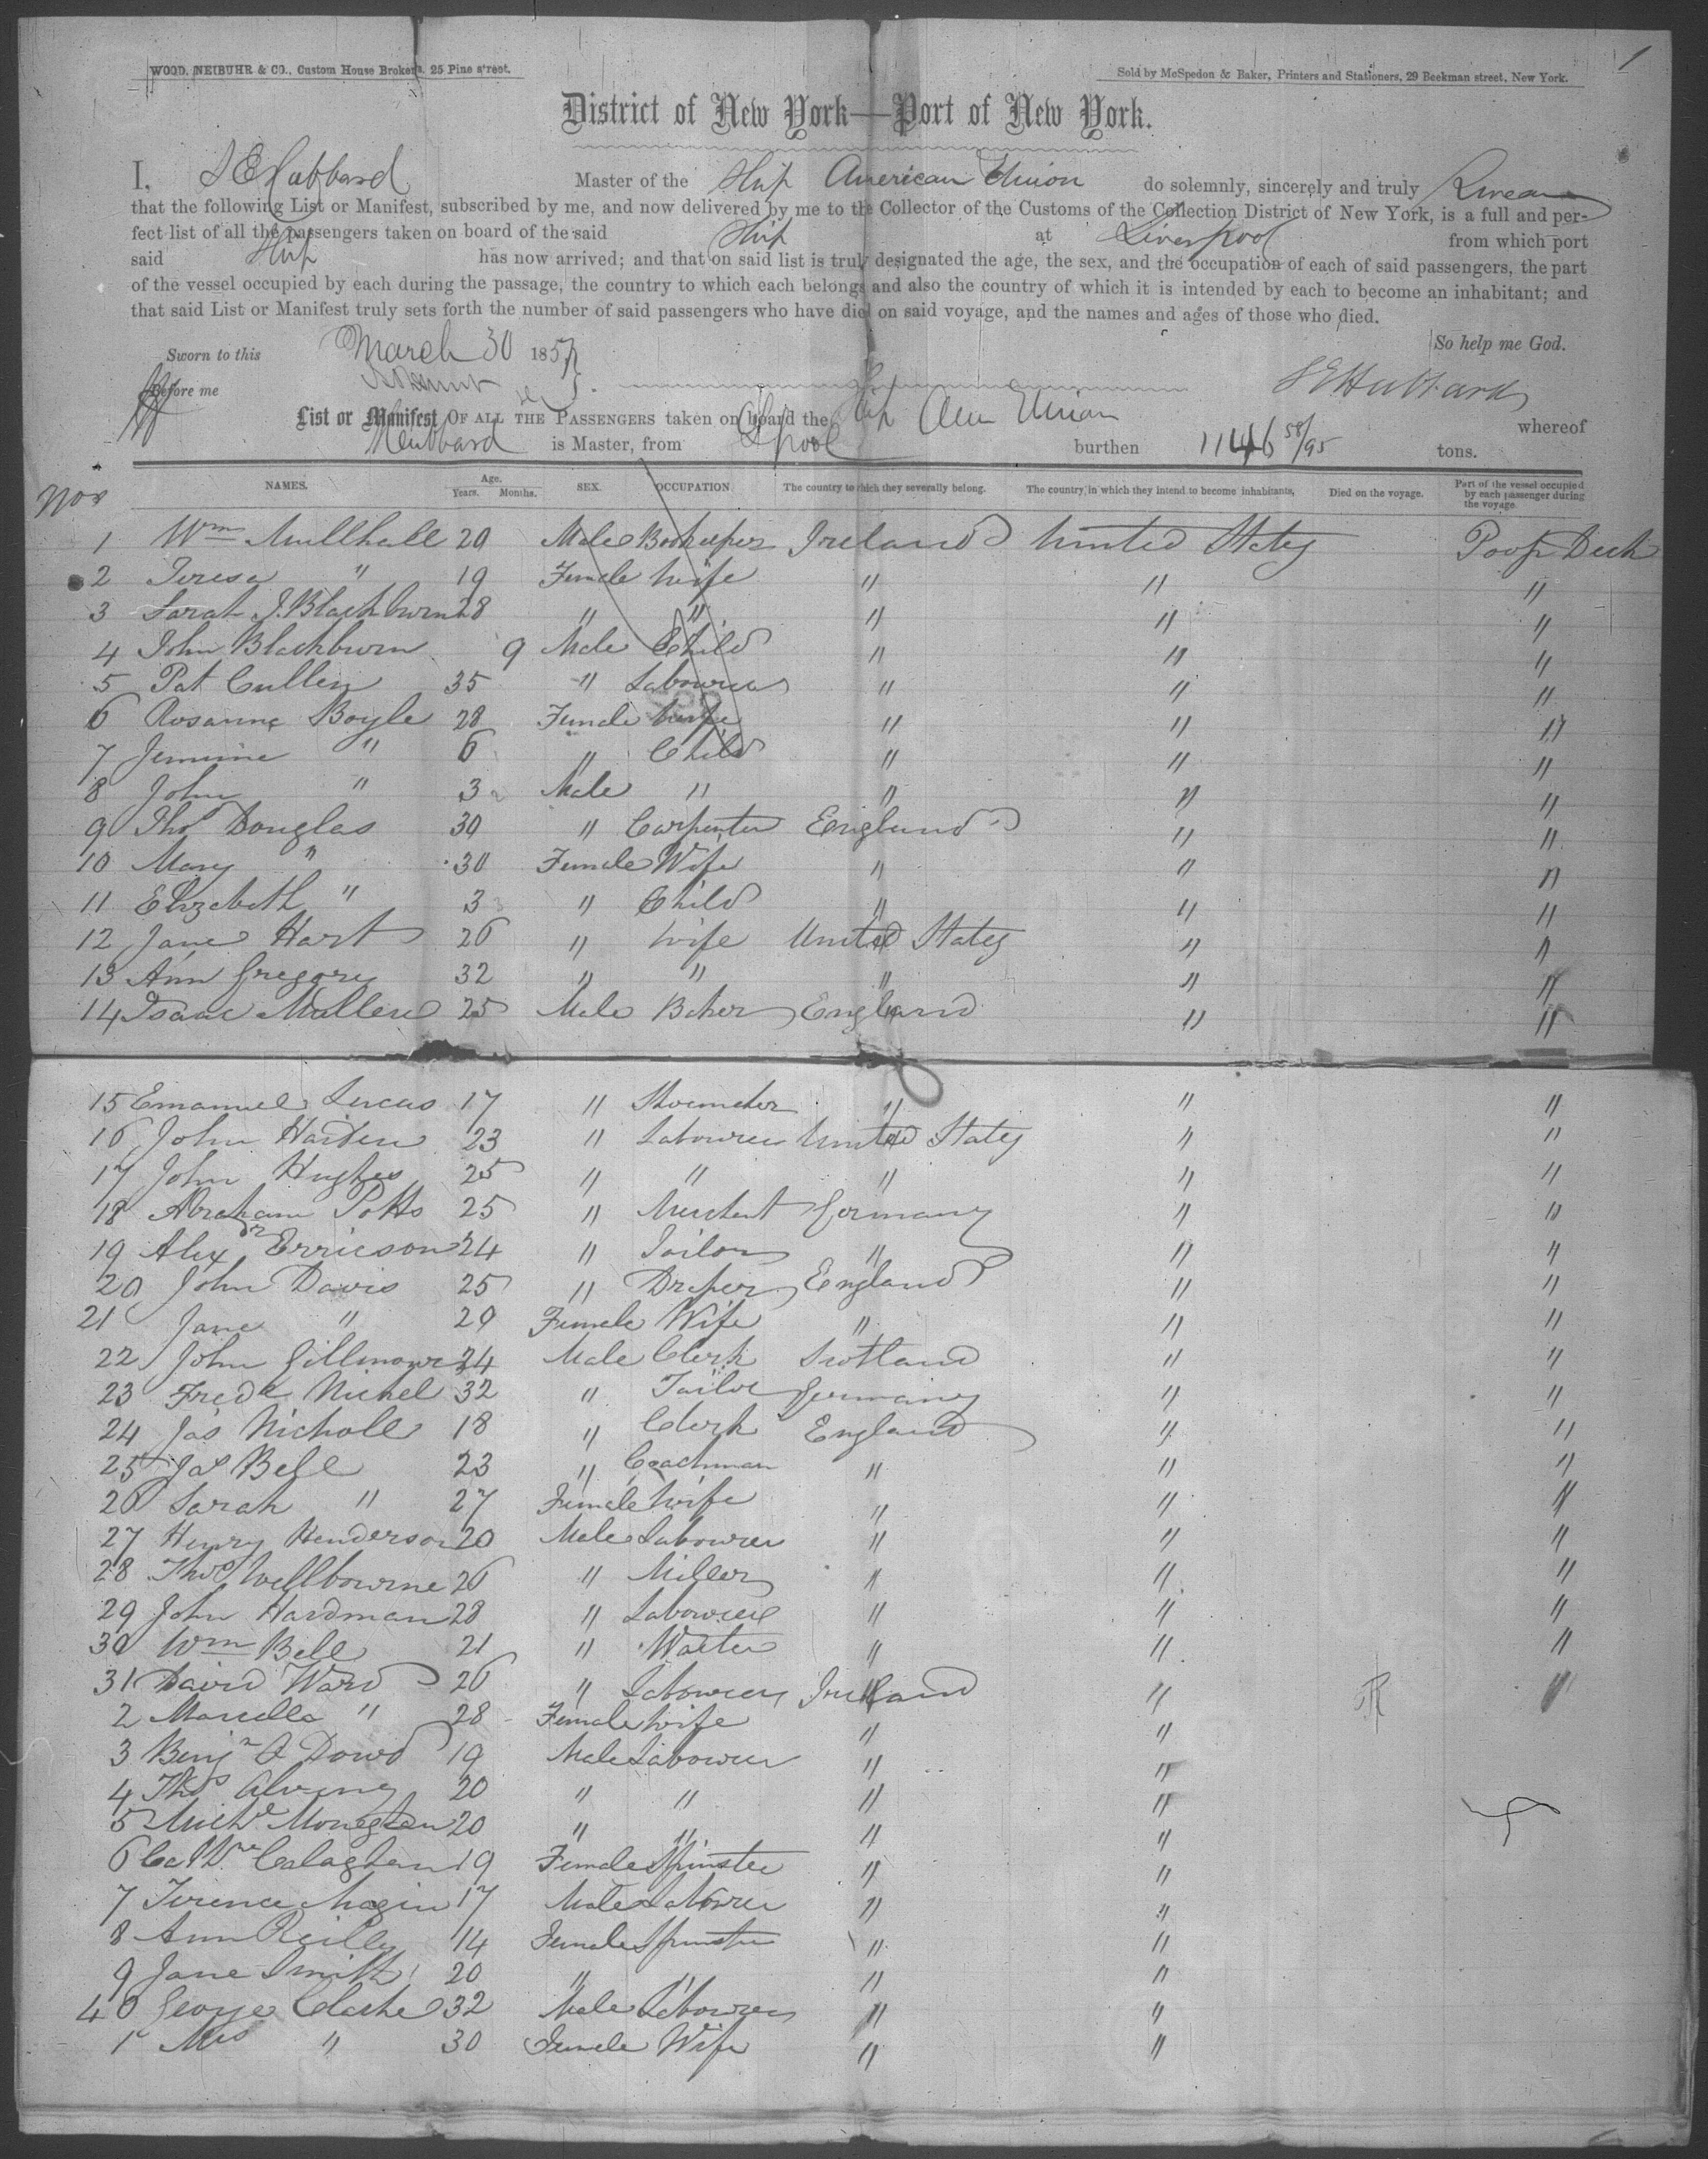 1
WOOD, NEIBUHR & CO., Custom House Brokers, 25 Pine street.
Sold by McSpedon & Baker, Printers and Stationers, 29 Beekman street, New York.
District of New York—Port of New York.
I, S E Hubbard Master of the Ship American Union do solemnly, sincerely and truly Swear
that the following List or Manifest, subscribed by me, and now delivered by me to the Collector of the Customs of the Collection District of New York, is a full and per-
fect list of all the passengers taken on board of the said Ship at Liverpool from which port
said Ship has now arrived; and that on said list is truly designated the age, the sex, and the occupation of each of said passengers, the part
of the vessel occupied by each during the passage, the country to which each belongs and also the country of which it is intended by each to become an inhabitant; and
that said List or Manifest truly sets forth the number of said passengers who have died on said voyage, and the names and ages of those who died.
So help me God.
Sworn to this March 30 1857
Before me
S E Hubbard
List or Manifest OF ALL THE PASSENGERS taken on board the Ship Am Union whereof
Hubbard is Master, from L'pool burthen 1146 58/95 tons.
Nos NAMES. Age. Years. Months. SEX. OCCUPATION. The country to which they severally belong. The country in which they intend to become inhabitants. Died on the voyage. Part of the vessel occupied by each passenger during the voyage.
1 Wm Mullhall 20 Male Bookeeper Ireland United States Poop Deck
2 Teresa " 19 Female Wife " " "
3 Sarah J. Blackburn 28 " " " " "
4 John Blackburn 9 Male Child " " "
5 Pat Cullen 35 " Labourer " " "
6 Rosanna Boyle 28 Female Wife " " "
7 Jemima " 6 " Child " " "
8 John " 3 Male " " " "
9 Thos Douglas 30 " Carpenter England " "
10 Mary " 30 Female Wife " " "
11 Elizabeth " 3 " Child " " "
12 Jane Hart 26 " Wife United States " "
13 Ann Gregory 32 " " " " "
14 Isaac Mallen 25 Male Baker England " "
15 Emanuel Lucas 17 " Shoemaker " " "
16 John Harden 23 " Labourer United States " "
17 John Hughes 25 " " " " "
18 Abraham Potts 25 " Merchant Germany " "
19 Alexr Erricson 24 " Tailor " " "
20 John Davis 25 " Draper England " "
21 Jane " 29 Female Wife " " "
22 John Gillmour 24 Male Clerk Scotland " "
23 Fredk Nichel 32 " Tailor Germany " "
24 Jas Nicholl 18 " Clerk England " "
25 Jas Bell 23 " Coachman " " "
26 Sarah " 27 Female Wife " " "
27 Henry Henderson 20 Male Labourer " " "
28 Thos Wellbourne 26 " Miller " " "
29 John Hardman 28 " Labourer " " "
30 Wm Bell 21 " Waiter " " "
31 David Ward 26 " Labourer Ireland " "
2 Marcella " 28 Female Wife " "
3 Benjn O Dowd 19 Male Labourer " "
4 Thos 20 " " " "
5 Michl Monaghan 20 " " " "
6 Cathne Calaghan 19 Female Spinster " "
7 Terence Magin 17 Male Labourer " "
8 Ann Reilly 14 Female Spinster " "
9 Jane Smith 20 " " " "
40 George Clarke 32 Male Labourer " "
1 Mrs " 30 Female Wife " "